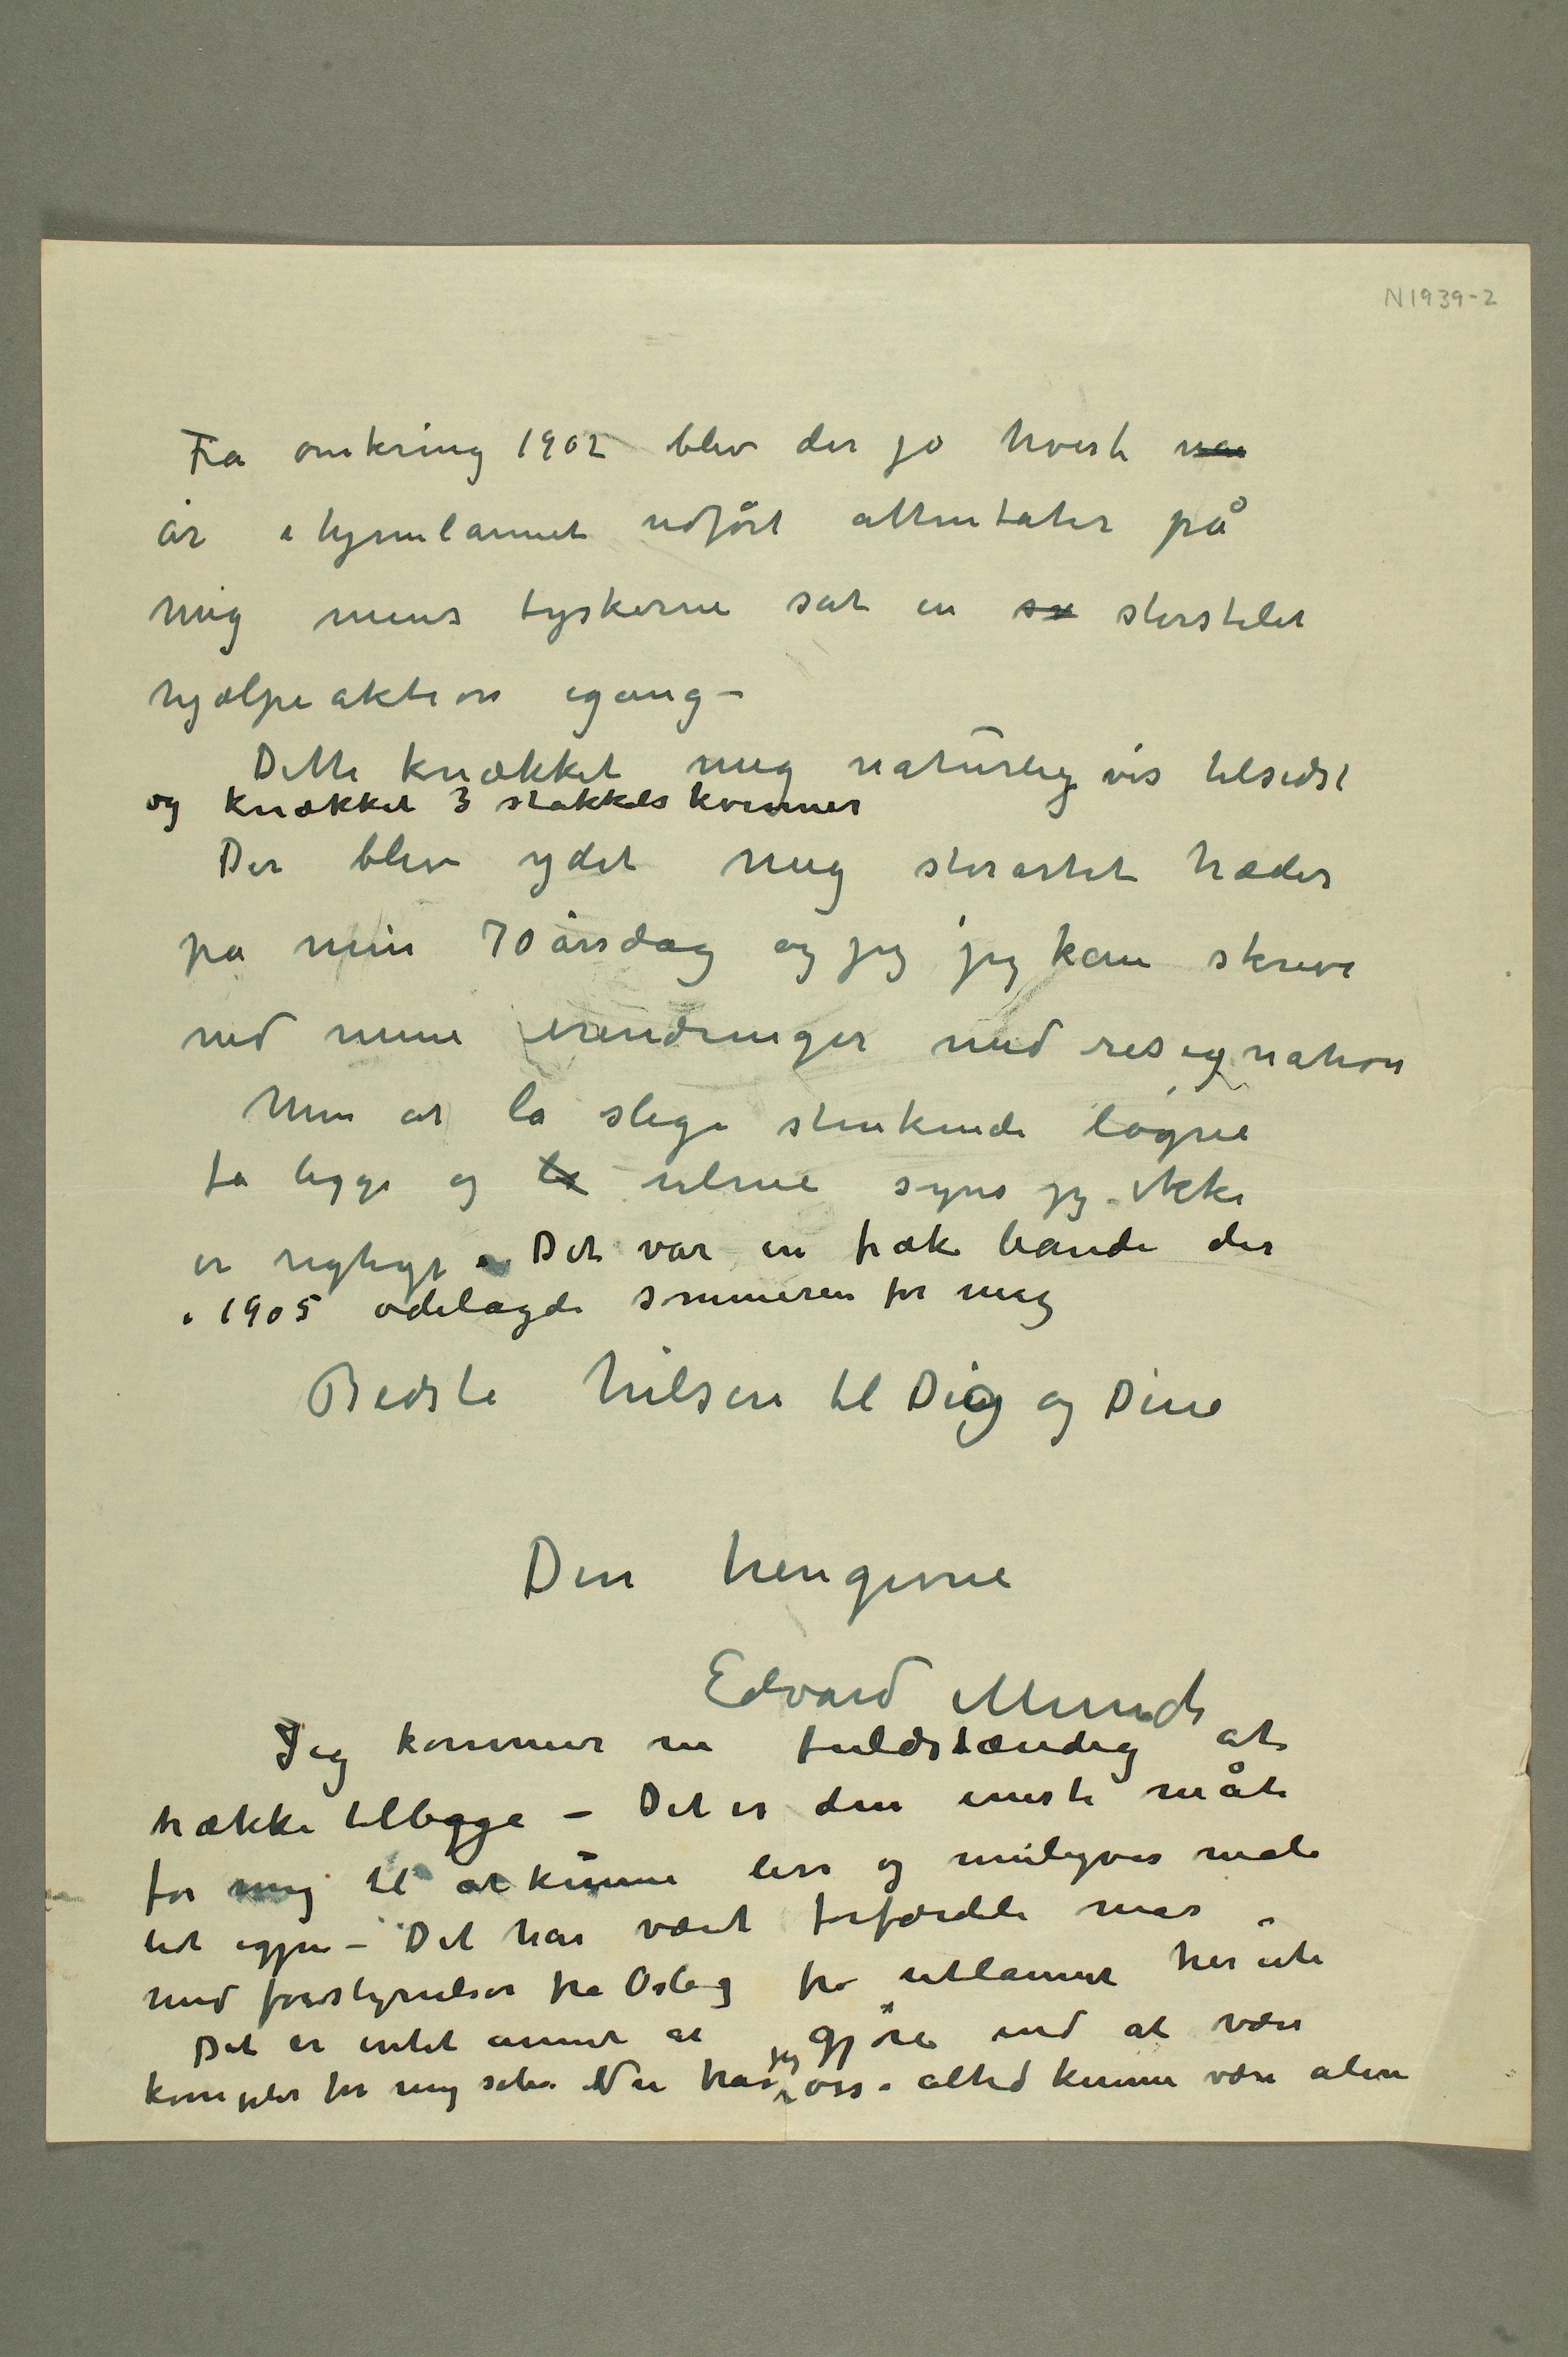 N1939-2
Fra omkring 1902 blev der jo hvert
år i hjemlannet udført attentater på
mig mens tyskerne sat en storstilet
hjælpeaktion igang –
Dette knækket mig naturligvis tilsidst
og knækket 3 stakkels kvinner
Der blev ydet mig storartet hæder
på min 70 årsdag og jeg jeg kan skrive
ned mine erendringer med resignation
Men at la slige stinkende løgne
få ligge og ulme syns jeg ikke
er rigtigt. Det var en fræk bande der
i 1905 ødelagde sommeren for mig
Bedste hilsen til Dig og Dine
Din hengivne
Edvard Munch
Jeg kommer nu fuldstændig at
trække tilbage – Det er den eneste måte
for mig til at kunne leve og muligvis male
lit igjen – Det har været forfærdelig
med forstyrrelser fra Oslo og fra utlannet her ute
Det er intet annet at gjøre end at være
for mig selv. Nu har jeg altid kunne være alene